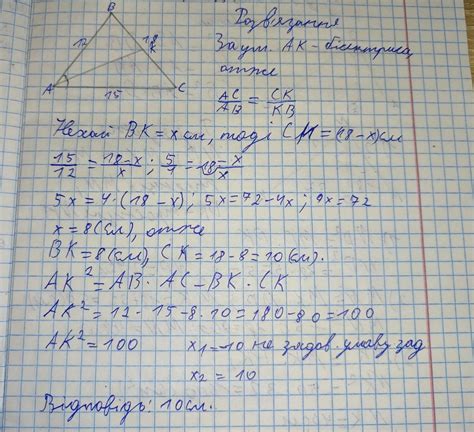 B
12
18
K
A
15
C
Розвязання
За ум. AK - бісектриса,
отже
AC/AB = CK/KB
Нехай BK = x см, тоді CK = (18 - x) см
15/12 = 18-x/x ; 5/4 = 18-x/x
5x = 4·(18 - x) ; 5x = 72 - 4x ; 9x = 72
x = 8(см), отже
BK = 8(см), CK = 18 - 8 = 10 (см).
AK² = AB · AC - BK · CK
AK² = 12 · 15 - 8 · 10 = 180 - 80 = 100
AK² = 100
x₁ = -10 не задов. умову зад
x₂ = 10
Відповідь: 10см.